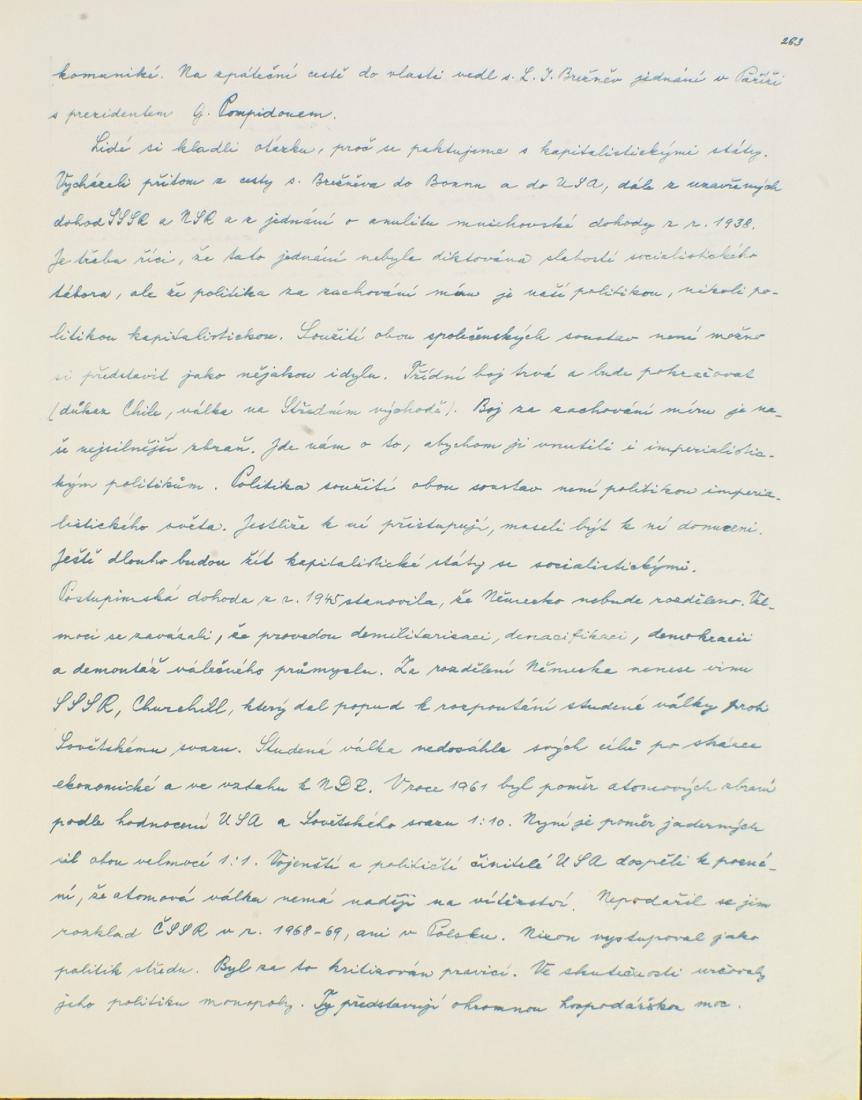 263
komuniké. Na zpáteční cestě do vlasti vedl s. L. I. Brežněv jednání v Paříži
s prezidentem G. Pompidouem.
Lidé si kladli otázku, proč se paktujeme s kapitalistickými státy.
Vycházeli přitom z cesty s. Brežněva do Bonnu a do USA, dále z uzavřených
dohod SSSR a NSR a z jednání o anulitu mnichovské dohody z r. 1938.
Je třeba říci, že tato jednání nebyla diktována slabostí socialistického
tábora, ale že politika za zachování míru je naší politikou, nikoli po-
litikou kapitalistickou. Soužití obou společenských soustav není možno
si představit jako nějakou idylu. Třídní boj trvá a bude pokračovat
(důkaz Chile, válka na Středním východě). Boj za zachování míru je na-
še nejsilnější zbraň. Jde nám o to, abychom ji vnutili i imperialistic-
kým politikům. Politika soužití obou soustav není politikou imperia-
listického světa. Jestliže k ní přistupují, museli být k ní donuceni.
Ještě dlouho budou žít kapitalistické státy se socialistickými.
Postupimská dohoda z r. 1945 stanovila, že Německo nebude rozděleno. Vel-
moci se zavázali, že provedou demilitarisaci, denacifikaci, demokracii
a demontáž válečného průmyslu. Za rozdělení Německa nenese vinu
SSSR, Churchill, který dal popud k rozpoutání studené války proti
Sovětskému svazu. Studená válka nedosáhla svých cílů po stránce
ekonomické a ve vztahu k NDR. V roce 1961 byl poměr atomových zbraní
podle hodnocení USA a Sovětského svazu 1:10. Nyní je poměr jaderných
sil obou velmocí 1:1. Vojenští a političtí činitelé USA dospěli k pozná-
ní, že atomová válka nemá naději na vítězství. Nepodařil se jim
rozklad ČSSR v r. 1968-69, ani v Polsku. Nixon vystupoval jako
politik středu. Byl za to kritizován pravicí. Ve skutečnosti určovaly
jeho politiku monopoly. Ty představují ohromnou hospodářskou moc.